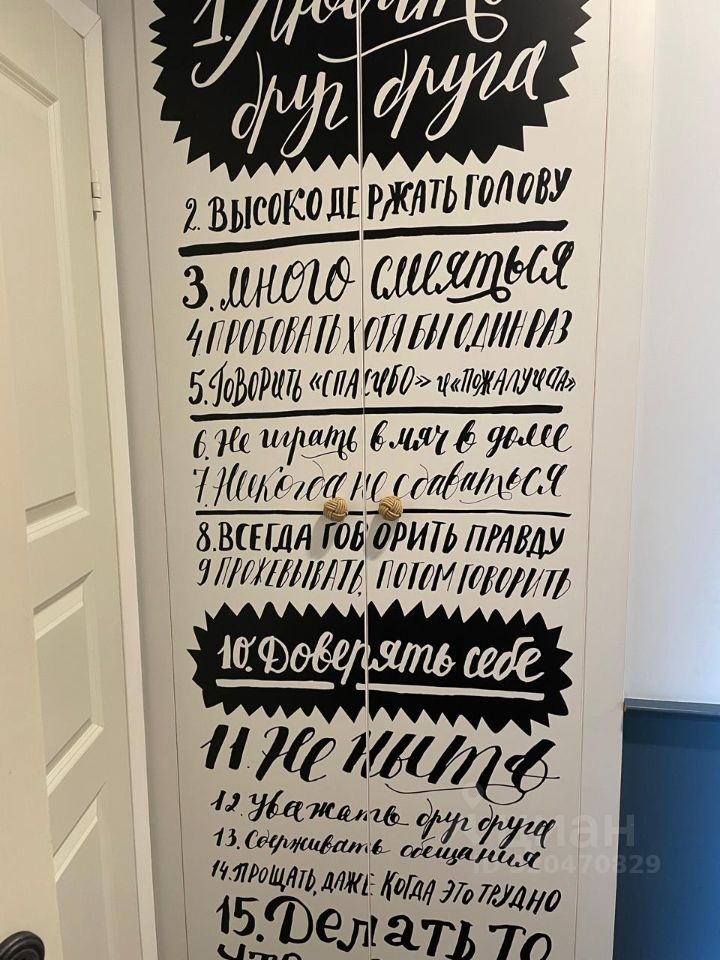 1. Любить
друг друга
2. ВЫСОКО ДЕРЖАТЬ ГОЛОВУ
3. много смеяться
4 ПРОБОВАТЬ ХОТЯ БЫ ОДИН РАЗ
5. ГОВОРИТЬ «СПАСИБО» и «ПОЖАЛУЙСТА»
6. Не играть в мяч в доме
7. Никогда не сдаваться
8. ВСЕГДА ГОВОРИТЬ ПРАВДУ
9 ПРОЖЕВЫВАТЬ, ПОТОМ ГОВОРИТЬ
10. Доверять себе
11. Не ныть
12. Уважать друг друга
13. Сдерживать обещания
14. ПРОЩАТЬ, ДАЖЕ КОГДА ЭТО ТРУДНО
15. Делать то
что
циан